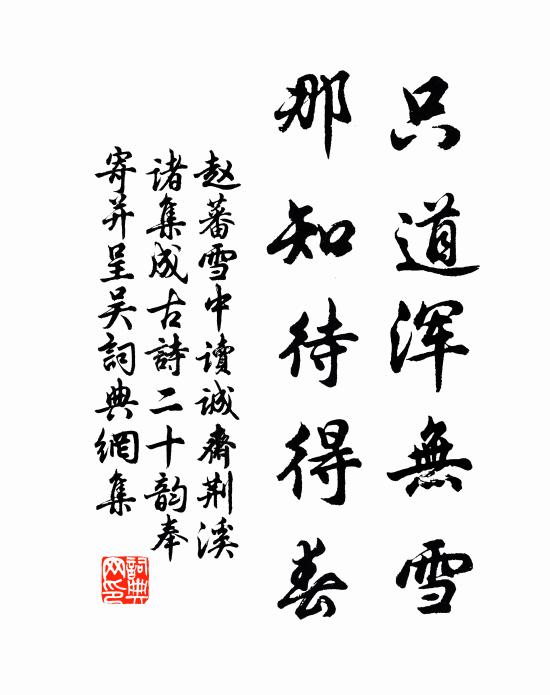 只道浑無雪
那知待得春
赵蕃雪中读誠齋荆溪
诸集成古詩二十韵奉
寄并呈吴詞典網集
詞典网印